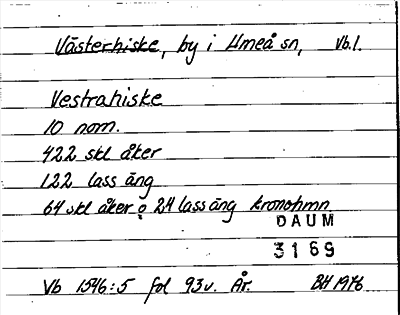 Västerhiske, by i Umeå sn, Vb.l.
Vestrahiske
10 nom.
422 skl åker
122 lass äng
64 skl åker o 24 lass äng kronohmn
DAUM
3169
Vb 1546:5 fol 93v. År. BH 1976